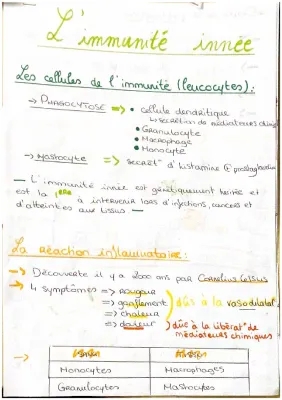 L'immunité innée
Les cellules de l'immunité (leucocytes):
→ PHAGOCYTOSE => • Cellule dendritique
↳ secrétion de médiateurs chimiq
• Granulocyte
• Macrophage
• Monocyte
→ Mastocyte => secrét° d'histamine
— L'immunité innée est génétiquement héritée et
est la 1ère à intervenir lors d'infections, cancers et
d'atteintes aux tissus —
La réaction inflammatoire:
→ Découverte il y a 2000 ans par Cornelius Celsius
→ 4 symptômes => rougeur
=> gonflement
=> chaleur
} dûs à la vasodilatat°
=> douleur } dûs à la libérat° de
médiateurs chimiques
Monocytes Macrophages
Granulocytes Mastocytes